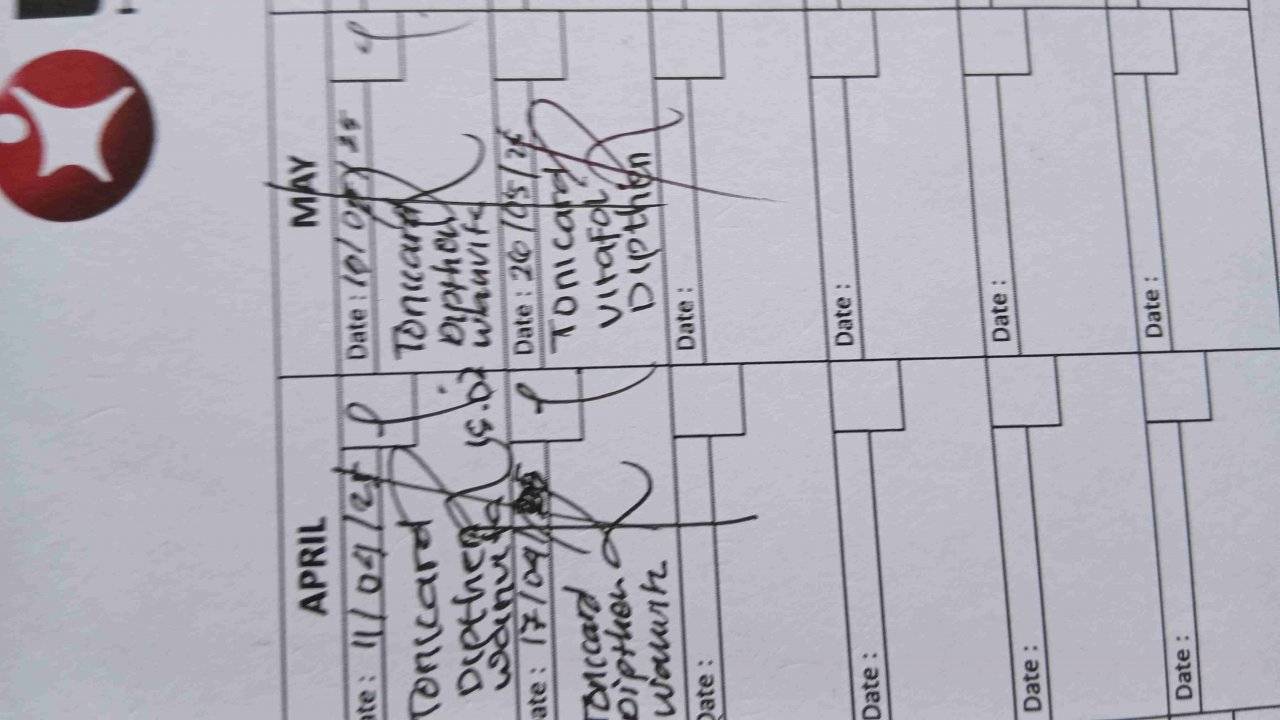 APRIL
Date : 11/04/25
Tonicard
Dipthen
Date : 17/04/
Tonicard
Dipthen
Date :
Date :
Date :
Date :
MAY
Date : 10/05/25
Tonicard
Dipthen
Date : 26/05/25
Tonicard
Vitafol
Dipthen
Date :
Date :
Date :
Date :